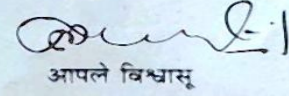 आपले विश्वासू